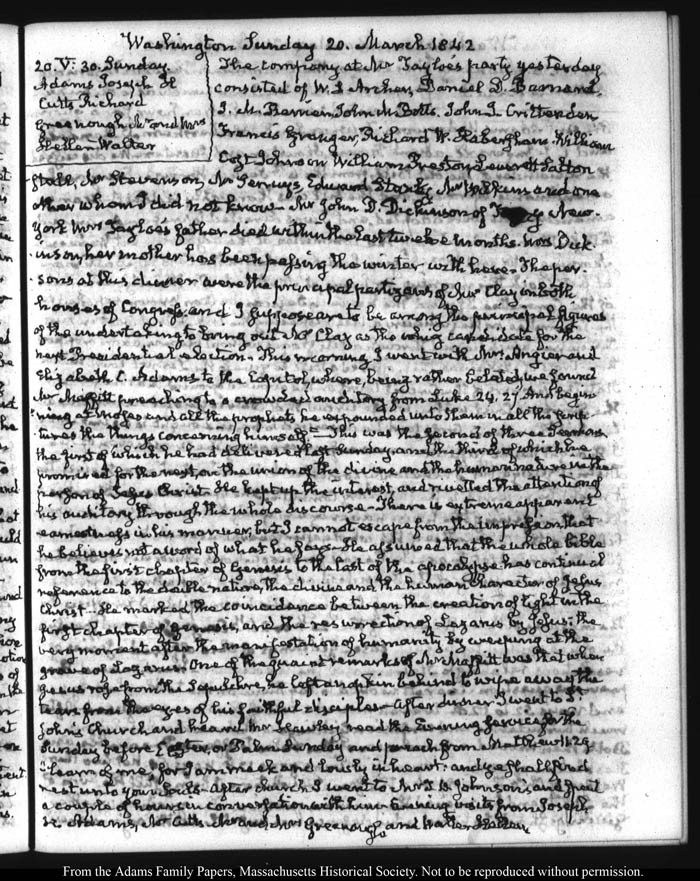 Washington Sunday 20. March 1842
20. V: 30. Sunday
Adams Joseph H
Cutts Richard
Greenough Mr and Mrs
Hellen Walter
The company at Mr Tayloe's party yesterday
consisted of W. S. Archer, Daniel D. Barnard,
J. M. Berrien, John M. Botts. John J. Crittenden
Francis Granger, Richard W. Habersham William
Cost Johnson William Preston Leverett Salton
stall, Mr Stevenson, Mr Edward Stanly Mr and one
other whom I did not know. Mr John D. Dickinson of Troy New-
York Mrs Tayloe's father died within the last twelve months. Mrs Dick-
inson, her mother has been passing the winter with her. The per-
sons at this dinner were the principal partizans of Mr Clay in both
houses of Congress, and I suppose are to be among the principal figures
of the undertaking to bring out Mr Clay as the whig candidate for the
next Presidential election. This morning I went with Mrs Angier and
Elizabeth C. Adams to the Capitol, where, being rather belated, we found
Mr Maffitt preaching to a crowded auditory from Luke 24. 27. And begin-
ning at Moses and all the prophets, he expounded unto them in all the scrip-
tures the things concerning himself. This was the second of three Sermons
the first of which he had delivered last Sunday, and the third of which he
promised for the next, on the union of the divine and the human nature in the
person of Jesus Christ. He kept up the interest, and rivetted the attention of
his auditory through the whole discourse. There is extreme apparent
earnestness in his manner, but I cannot escape from the impression, that
he believes not a word of what he says. He assumed that the whole bible
from the first chapter of Genesis to the last of the apocalypse has continual
reference to the double nature, the divine and the human character of Jesus
Christ. He marked the coincidence between the creation of light in the
first chapter of Genesis, and the resurrection of Lazarus by Jesus; the
very moment after the manifestation of humanity by weeping at the
grave of Lazarus. One of the quaint remarks of Mr Maffitt was that when
Jesus rose from the Sepulchre, he left a napkin behind to wipe away the
tears from the eyes of his faithful disciples. After dinner I went to St
John's Church and heard Mr Hawley read the Evening service for the
Sunday before Easter, or Palm Sunday and preach from Matthew 11. 29
"learn of me, for I am meek and lowly in heart: and ye shall find
rest unto your souls. After church I went to Mr Johnson's and spent
a couple of hours in conversation with him. Evening visits from Joseph
H. Adams, Mr Cutts Mr and Mrs Greenough and Walter Hellen
From the Adams Family Papers, Massachusetts Historical Society. Not to be reproduced without permission.